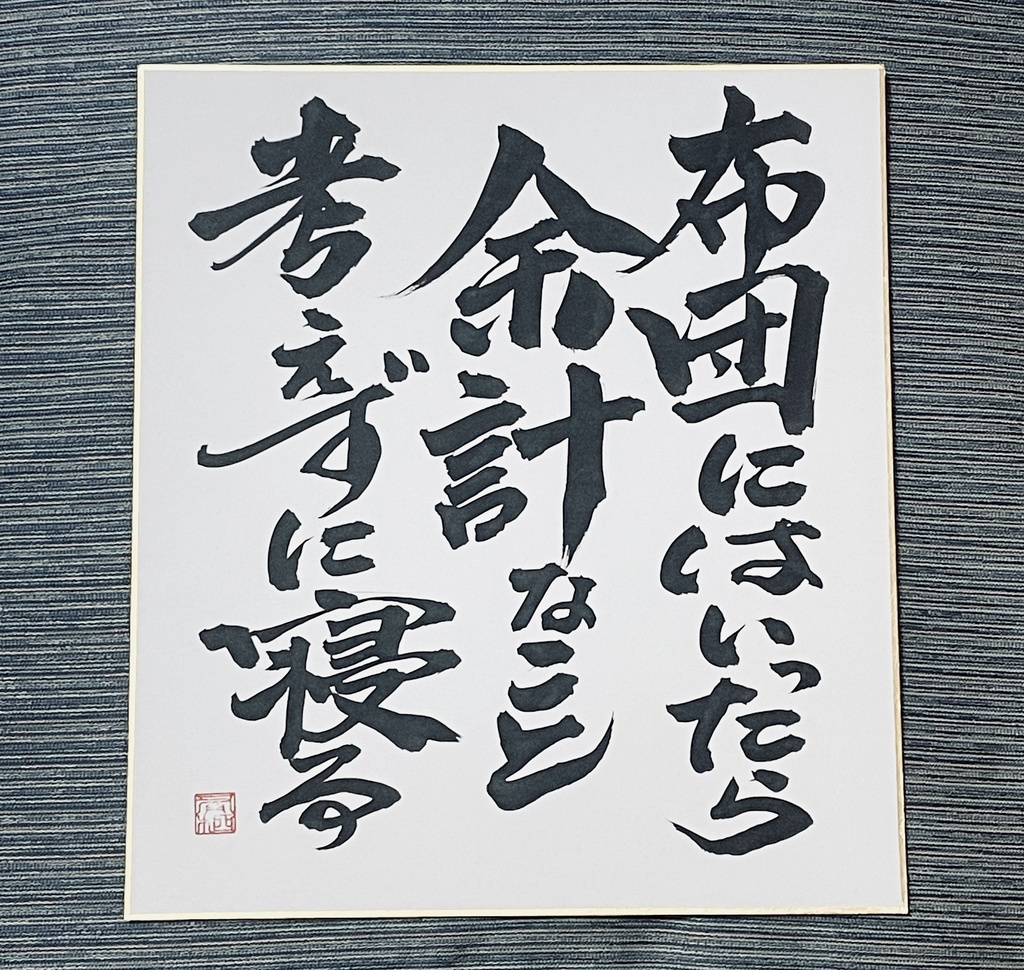 布団にはいったら
余計なこと
考えずに寝る